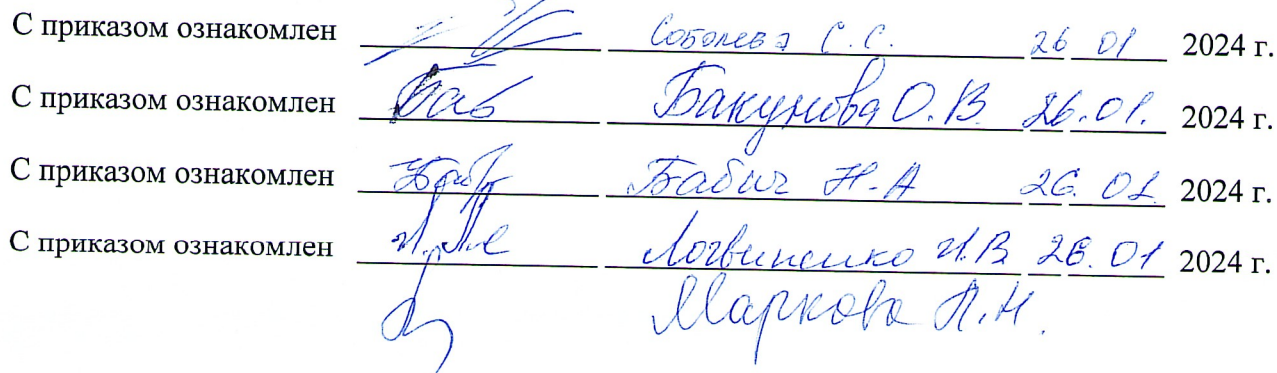 С приказом ознакомлен Соболева С.С. 26 01 2024 г.
С приказом ознакомлен Баб Бакунова О.В. 26.01. 2024 г.
С приказом ознакомлен Бабич Н.А 26.01 2024 г.
С приказом ознакомлен Логвиненко И.В 26.01 2024 г.
Маркова Л.Н.